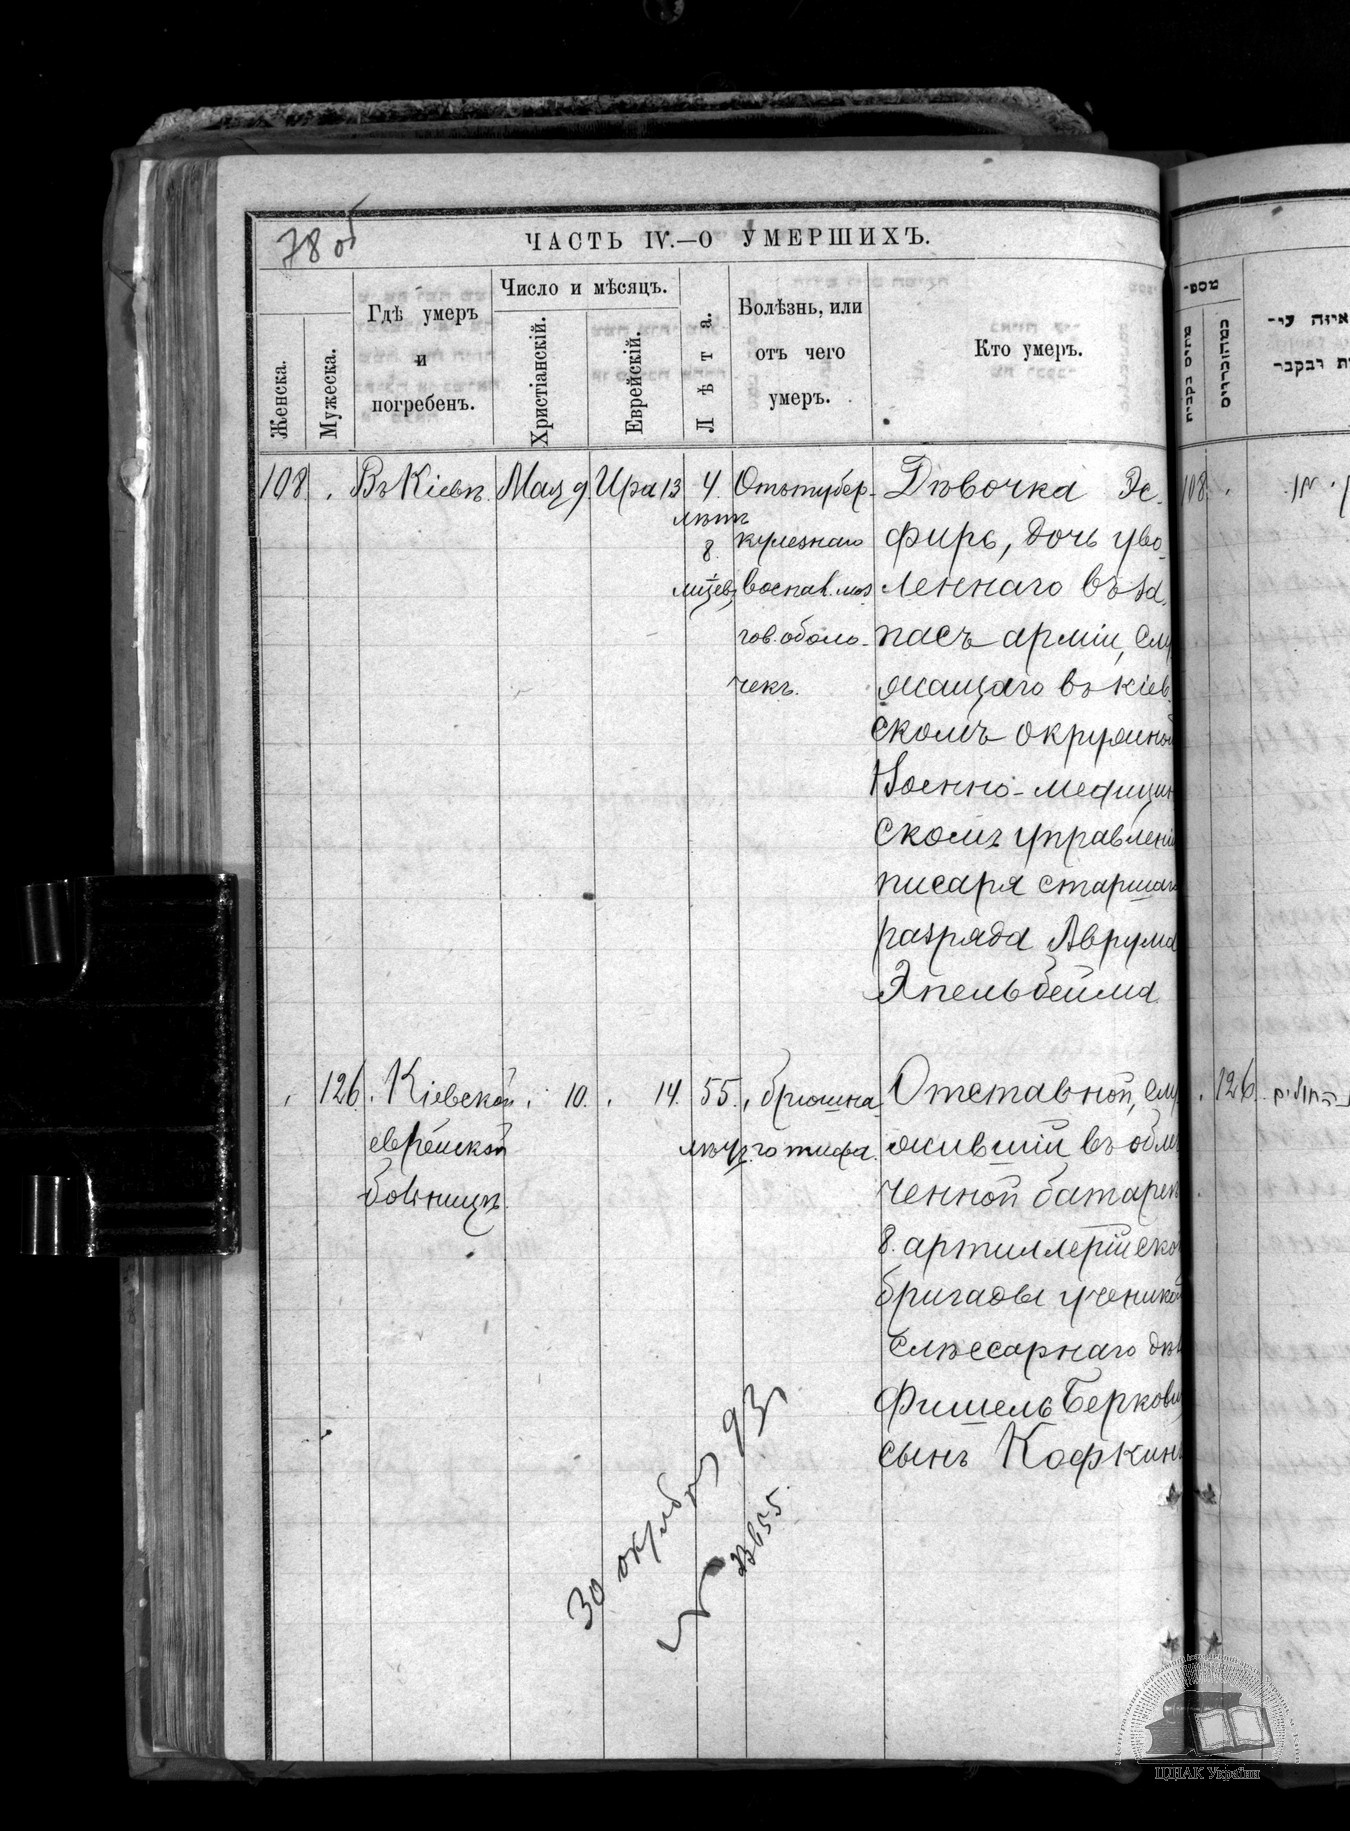 78 об
ЧАСТЬ IV.—О УМЕРШИХЪ.
Женска.
Мужеска.
Гдѣ умеръ
и
погребенъ.
Число и мѣсяцъ.
Христіанскій.
Еврейскій.
Лѣта.
Болѣзнь, или
отъ чего
умеръ.
Кто умеръ.
108.
Въ Кіевѣ.
Мая 9
Ира 13
4
лѣтъ
8
мѣсяц.
Отъ тубер-
кулезнаго
воспал. моз
гов. оболо-
чекъ.
Дѣвочка Эс-
фирь, дочь уво
леннаго въ за
пасъ арміи, слу
жащаго въ Кіев
скомъ окружном
Военно-медицин
скомъ управленіи
писаря старшаго
разряда Аврума
Эпельбейма
126.
Кіевской
еврейской
больницѣ.
10.
14.
55.
лѣтъ
брюшна
го тифа.
Отставной, слу
жившій въ облег
ченной батареѣ
8. артиллерійской
бригады ученикомъ
слѣсарнаго дѣл
Фишель Беркович
сынъ Кофкинъ
30 октября 93
מספ־
108
126
החולים
ЦДІАК України